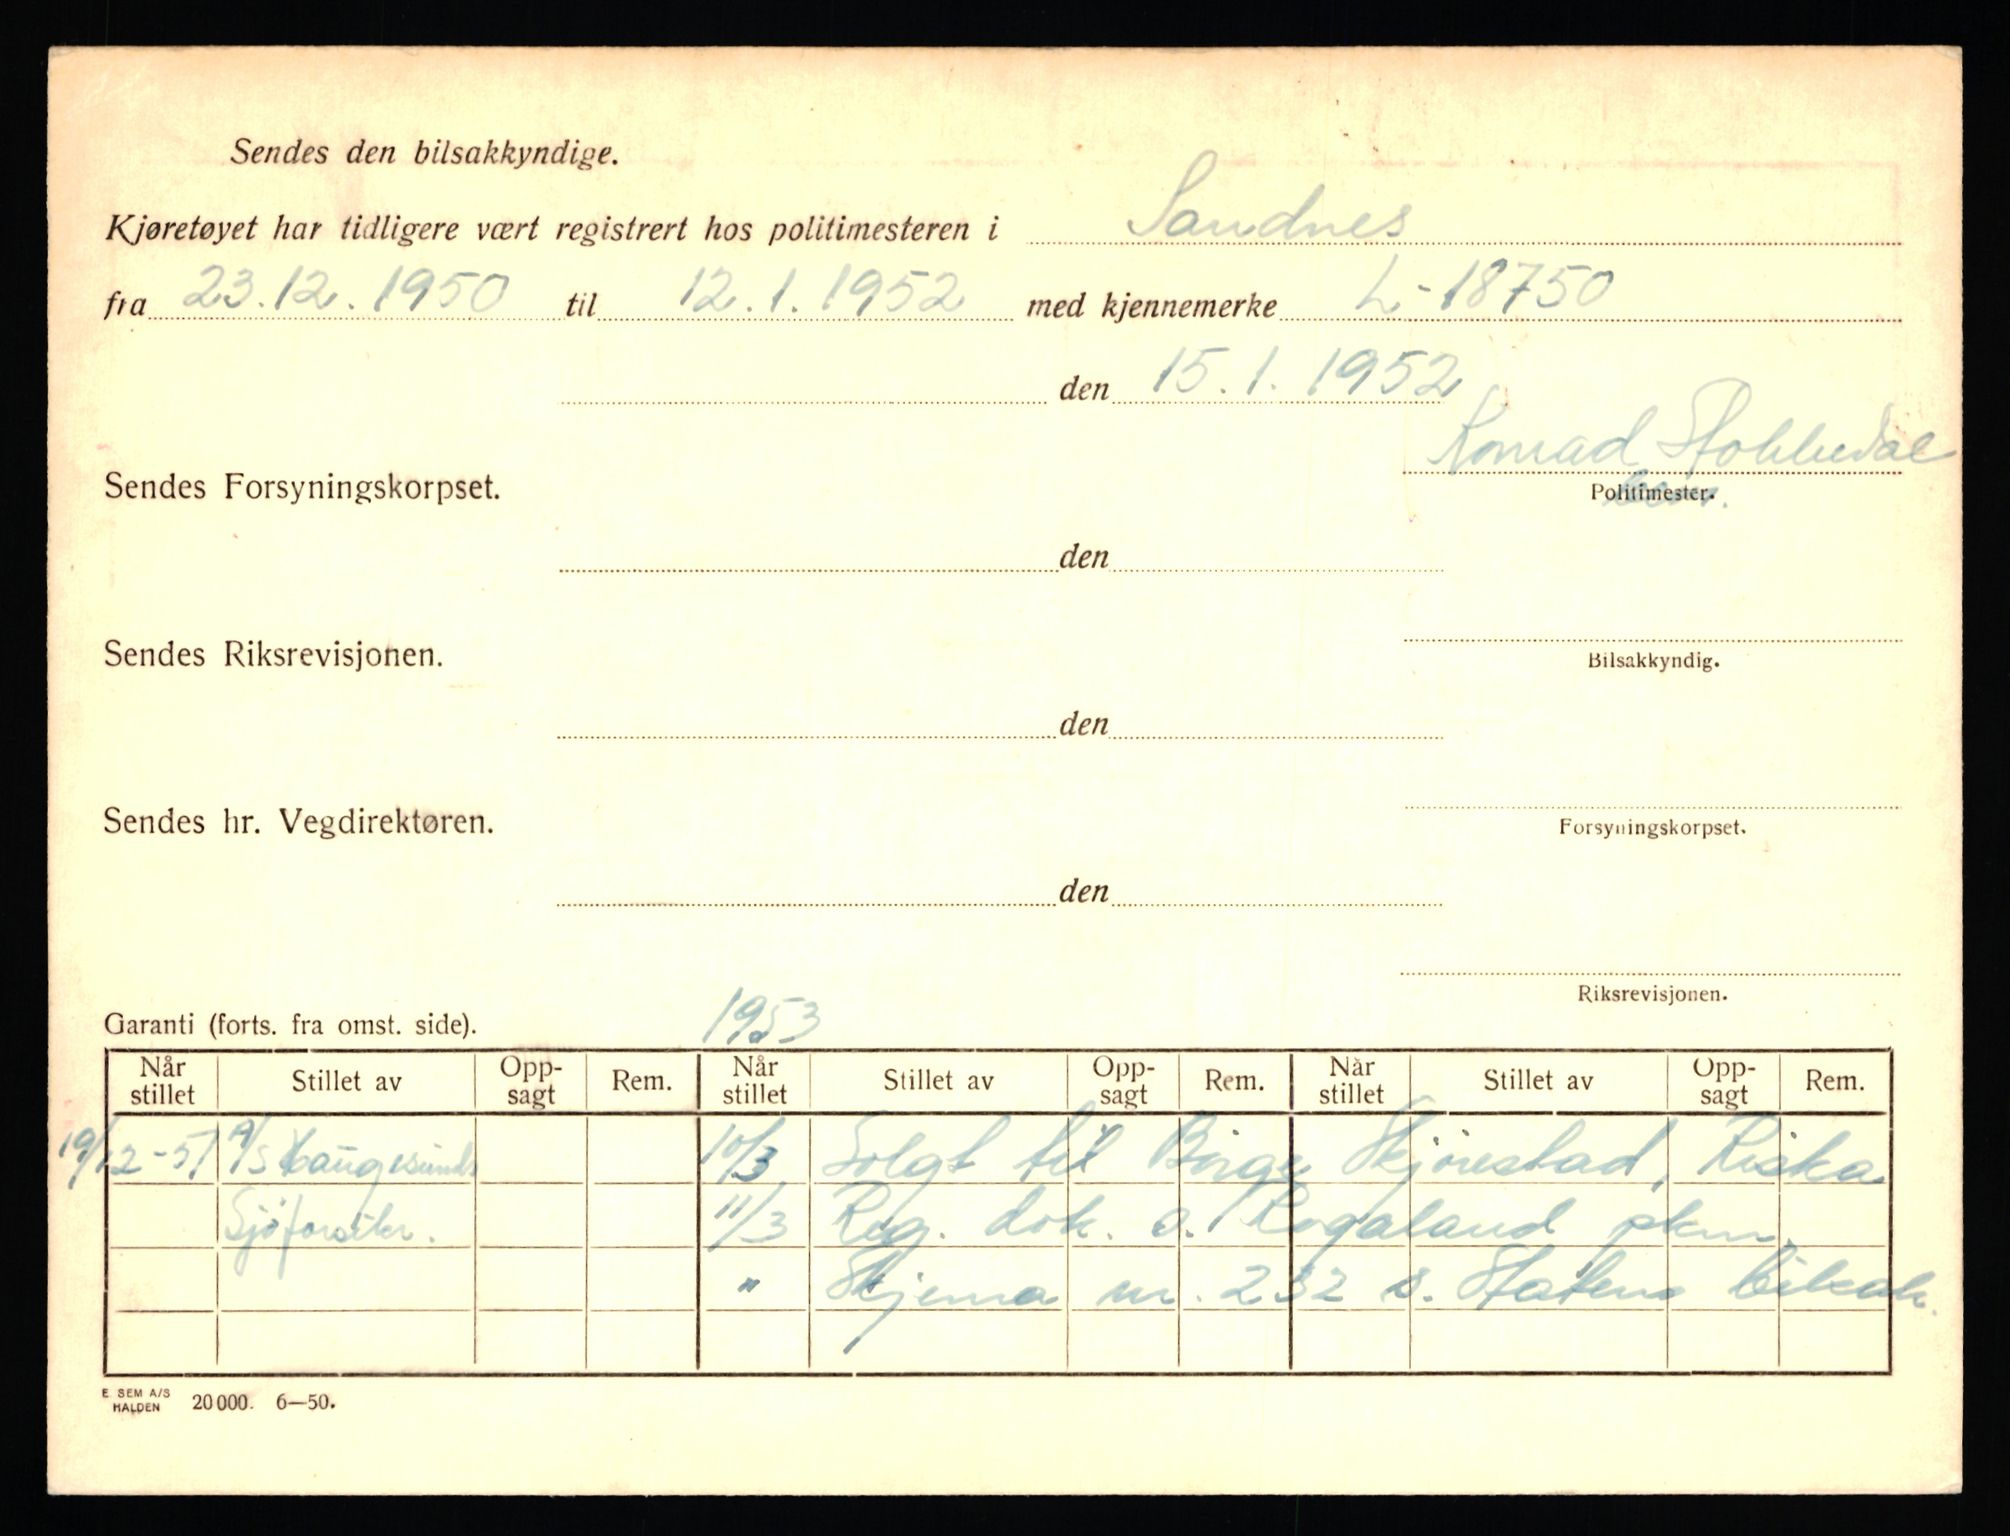 Sendes den bilsakkyndige.
Kjøretøyet har tidligere vært registrert hos politimesteren i Sandnes
fra 23.12.1950 til 12.1.1952 med kjennemerke L-18750
den 15.1.1952
Konrad
Sendes Forsyningskorpset.
Politimester.
den
Sendes Riksrevisjonen.
Bilsakkyndig.
den
Sendes hr. Vegdirektøren.
Forsyningskorpset.
den
Riksrevisjonen.
Garanti (forts. fra omst. side). 1953
Når stillet Stillet av Opp-sagt Rem. Når stillet Stillet av Opp-sagt Rem. Når stillet Stillet av Opp-sagt Rem.
19/12-51 A/S Haugesunds 10/3 Solgt til Børge Skjørestad, Riska
Sjøforsikr. 11/3 Reg. dok. s. Rogaland pkm.
" Skjema nr. 232 s. Statens bilsak.
E. SEM A/S
HALDEN 20000. 6—50.